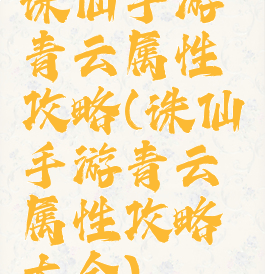 诛仙手游
青云属性
攻略(诛仙
手游青云
属性攻略
大全)